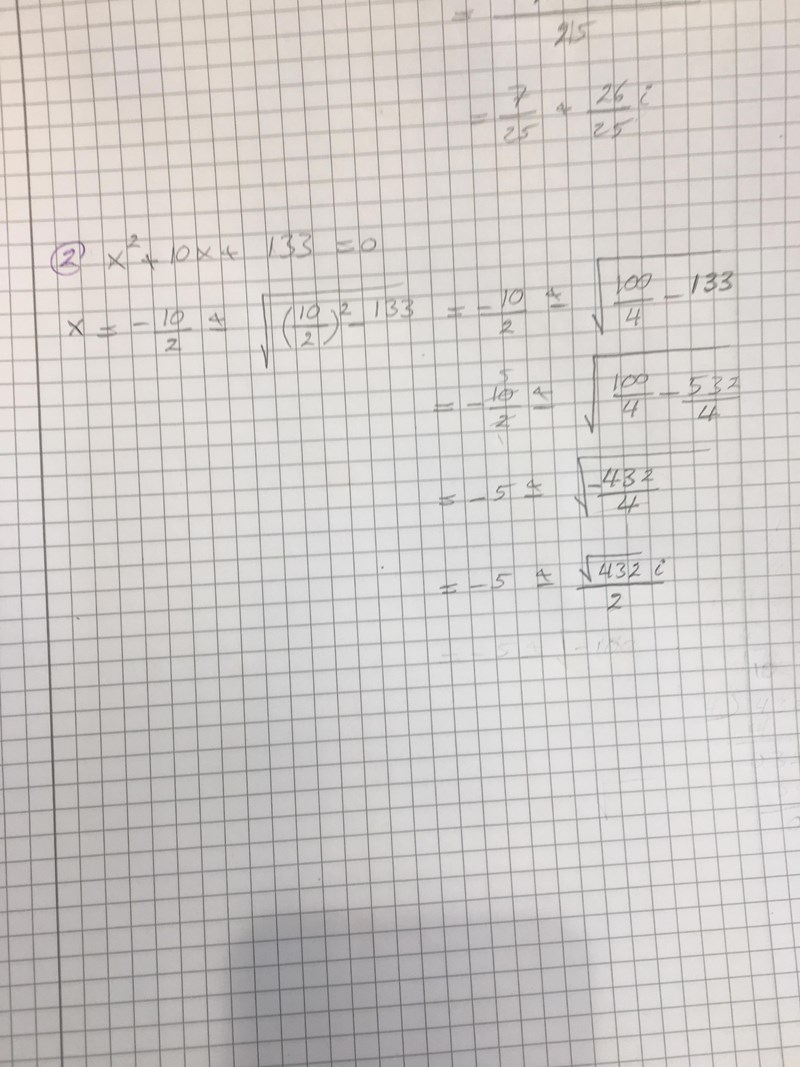 = 25
= 7/25 + 26/25 i
② x² + 10x + 133 = 0
x = - 10/2 ± √((10/2)² - 133) = - 10/2 ± √(100/4 - 133)
= - 10/2 ± √(100/4 - 532/4)
= - 5 ± √(-432/4)
= - 5 ± √432 i / 2